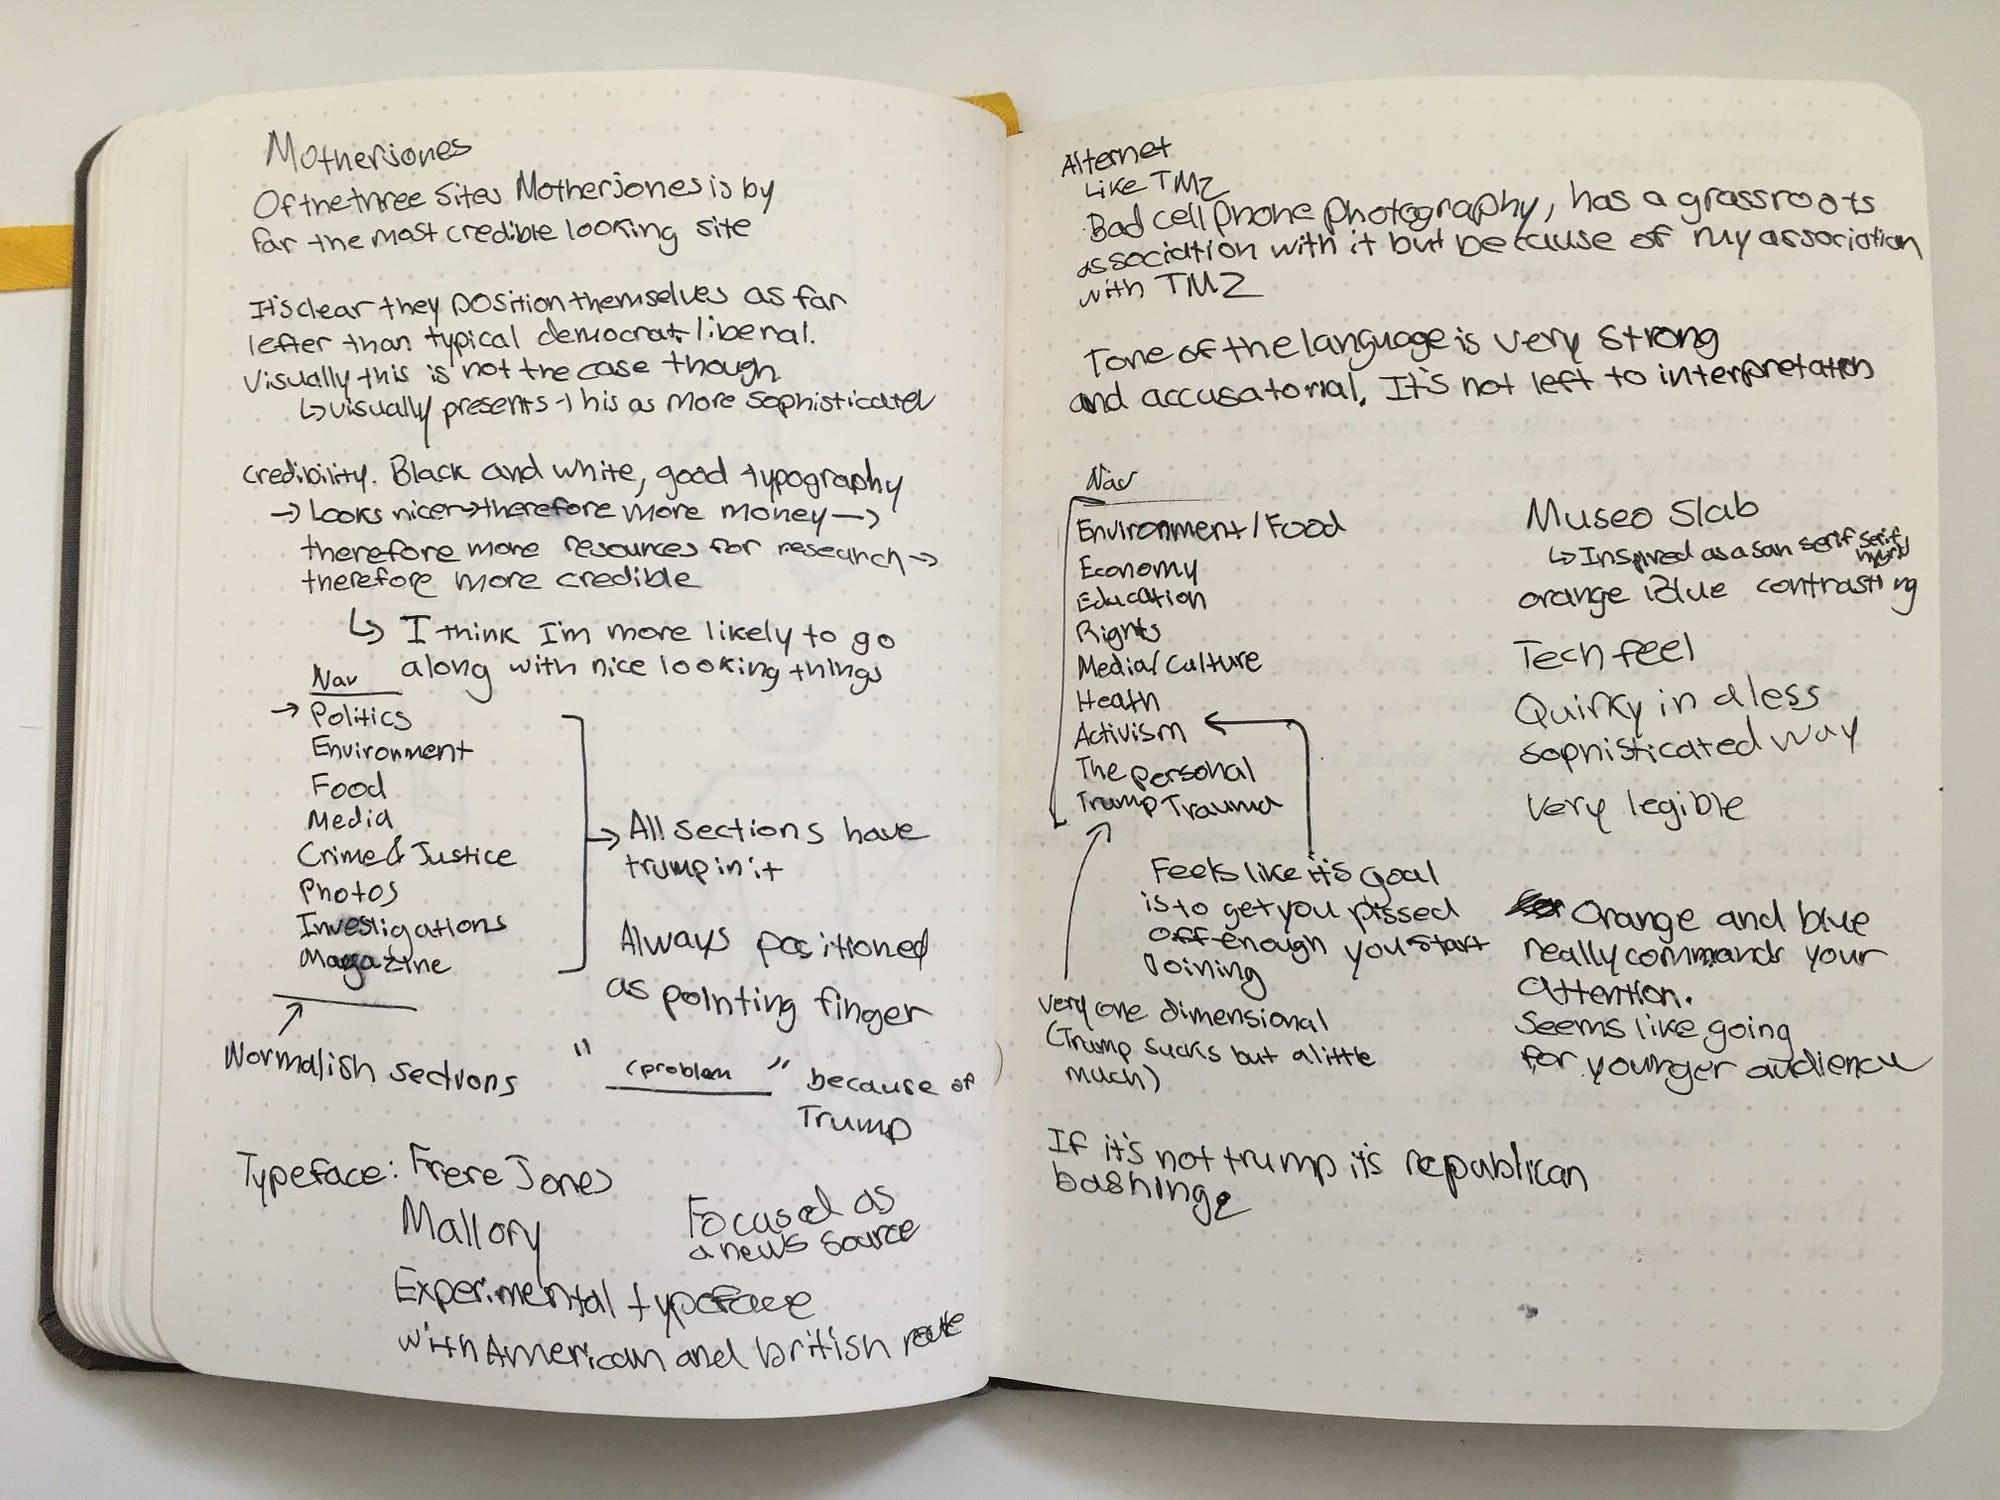 Motherjones
Of the three sites Motherjones is by
far the most credible looking site
It's clear they position themselves as far
lefter than typical democrat liberal.
Visually this is not the case though
↳ visually presents this as more sophisticated
credibility. Black and white, good typography
→ Looks nicer → therefore more money →
therefore more resources for research →
therefore more credible
↳ I think I'm more likely to go
along with nice looking things
Nav
→ Politics
Environment
Food
Media
Crime & Justice
Photos
Investigations
Magazine
Normalish sections
→ All sections have
trump in it
Always positioned
as pointing finger
" (problem " because of
Trump
Typeface: Frere Jones
Mallory
Focused as
a news source
Experimental typeface
with American and british
Alternet
Like TMZ
Bad cell phone photography, has a grassroots
association with it but because of my association
with TMZ
Tone of the language is very strong
and accusatorial. It's not left to interpretation
Nav
Environment/Food
Economy
Education
Rights
Media/Culture
Health
Activism
The personal
Trump Trauma
Feels like it's goal
is to get you pissed
off enough you start
Joining
very one dimensional
(Trump sucks but a little
much)
If it's not trump it's republican
bashing
Museo Slab
↳ Inspired as a san serif serif
hybrid
orange blue contrasting
Tech feel
Quirky in a less
sophisticated way
very legible
Orange and blue
really commands your
attention.
Seems like going
for younger audience